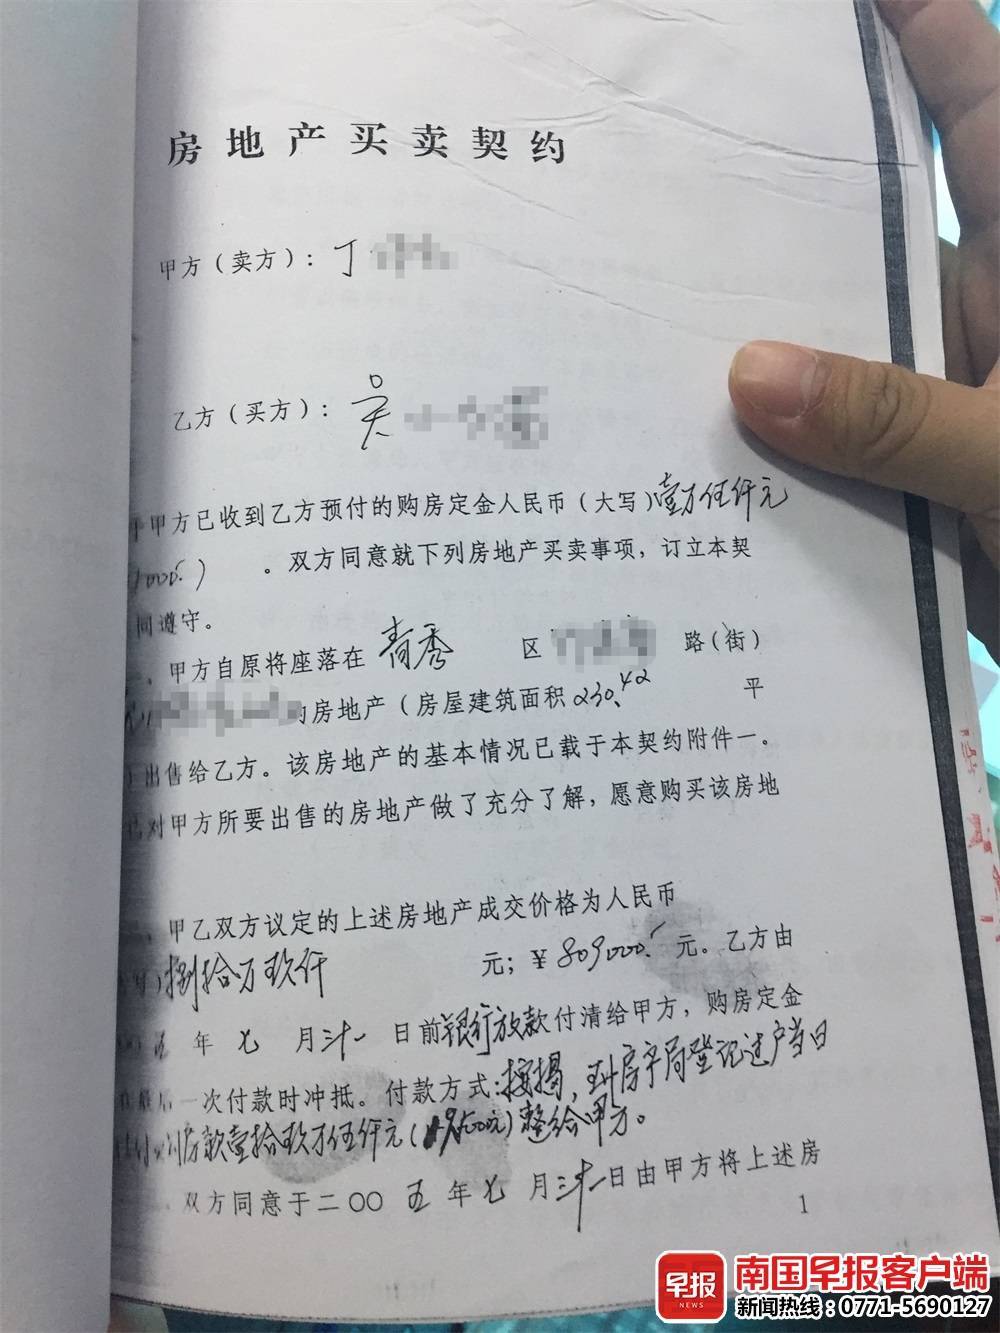 房地产买卖契约
甲方（卖方）：丁
乙方（买方）：吴
甲方已收到乙方预付的购房定金人民币（大写）壹万伍仟元
。双方同意就下列房地产买卖事项，订立本契
同遵守。
、甲方自原将座落在 青秀 区 路（街）
房地产（房屋建筑面积 230.42 平
出售给乙方。该房地产的基本情况已载于本契约附件一。
对甲方所要出售的房地产做了充分了解，愿意购买该房地
甲乙双方议定的上述房地产成交价格为人民币
捌拾万玖仟 元；￥809000. 元。乙方由
五 年 七 月 三十一 日前银行放款付清给甲方，购房定金
在最后一次付款时冲抵。付款方式：按揭，到房产局登记过户当日
房款壹拾玖万伍仟元（ ）整给甲方。
双方同意于二〇〇五年七月三十一日由甲方将上述房
1
早报
NEWS
南国早报客户端
新闻热线：0771-5690127